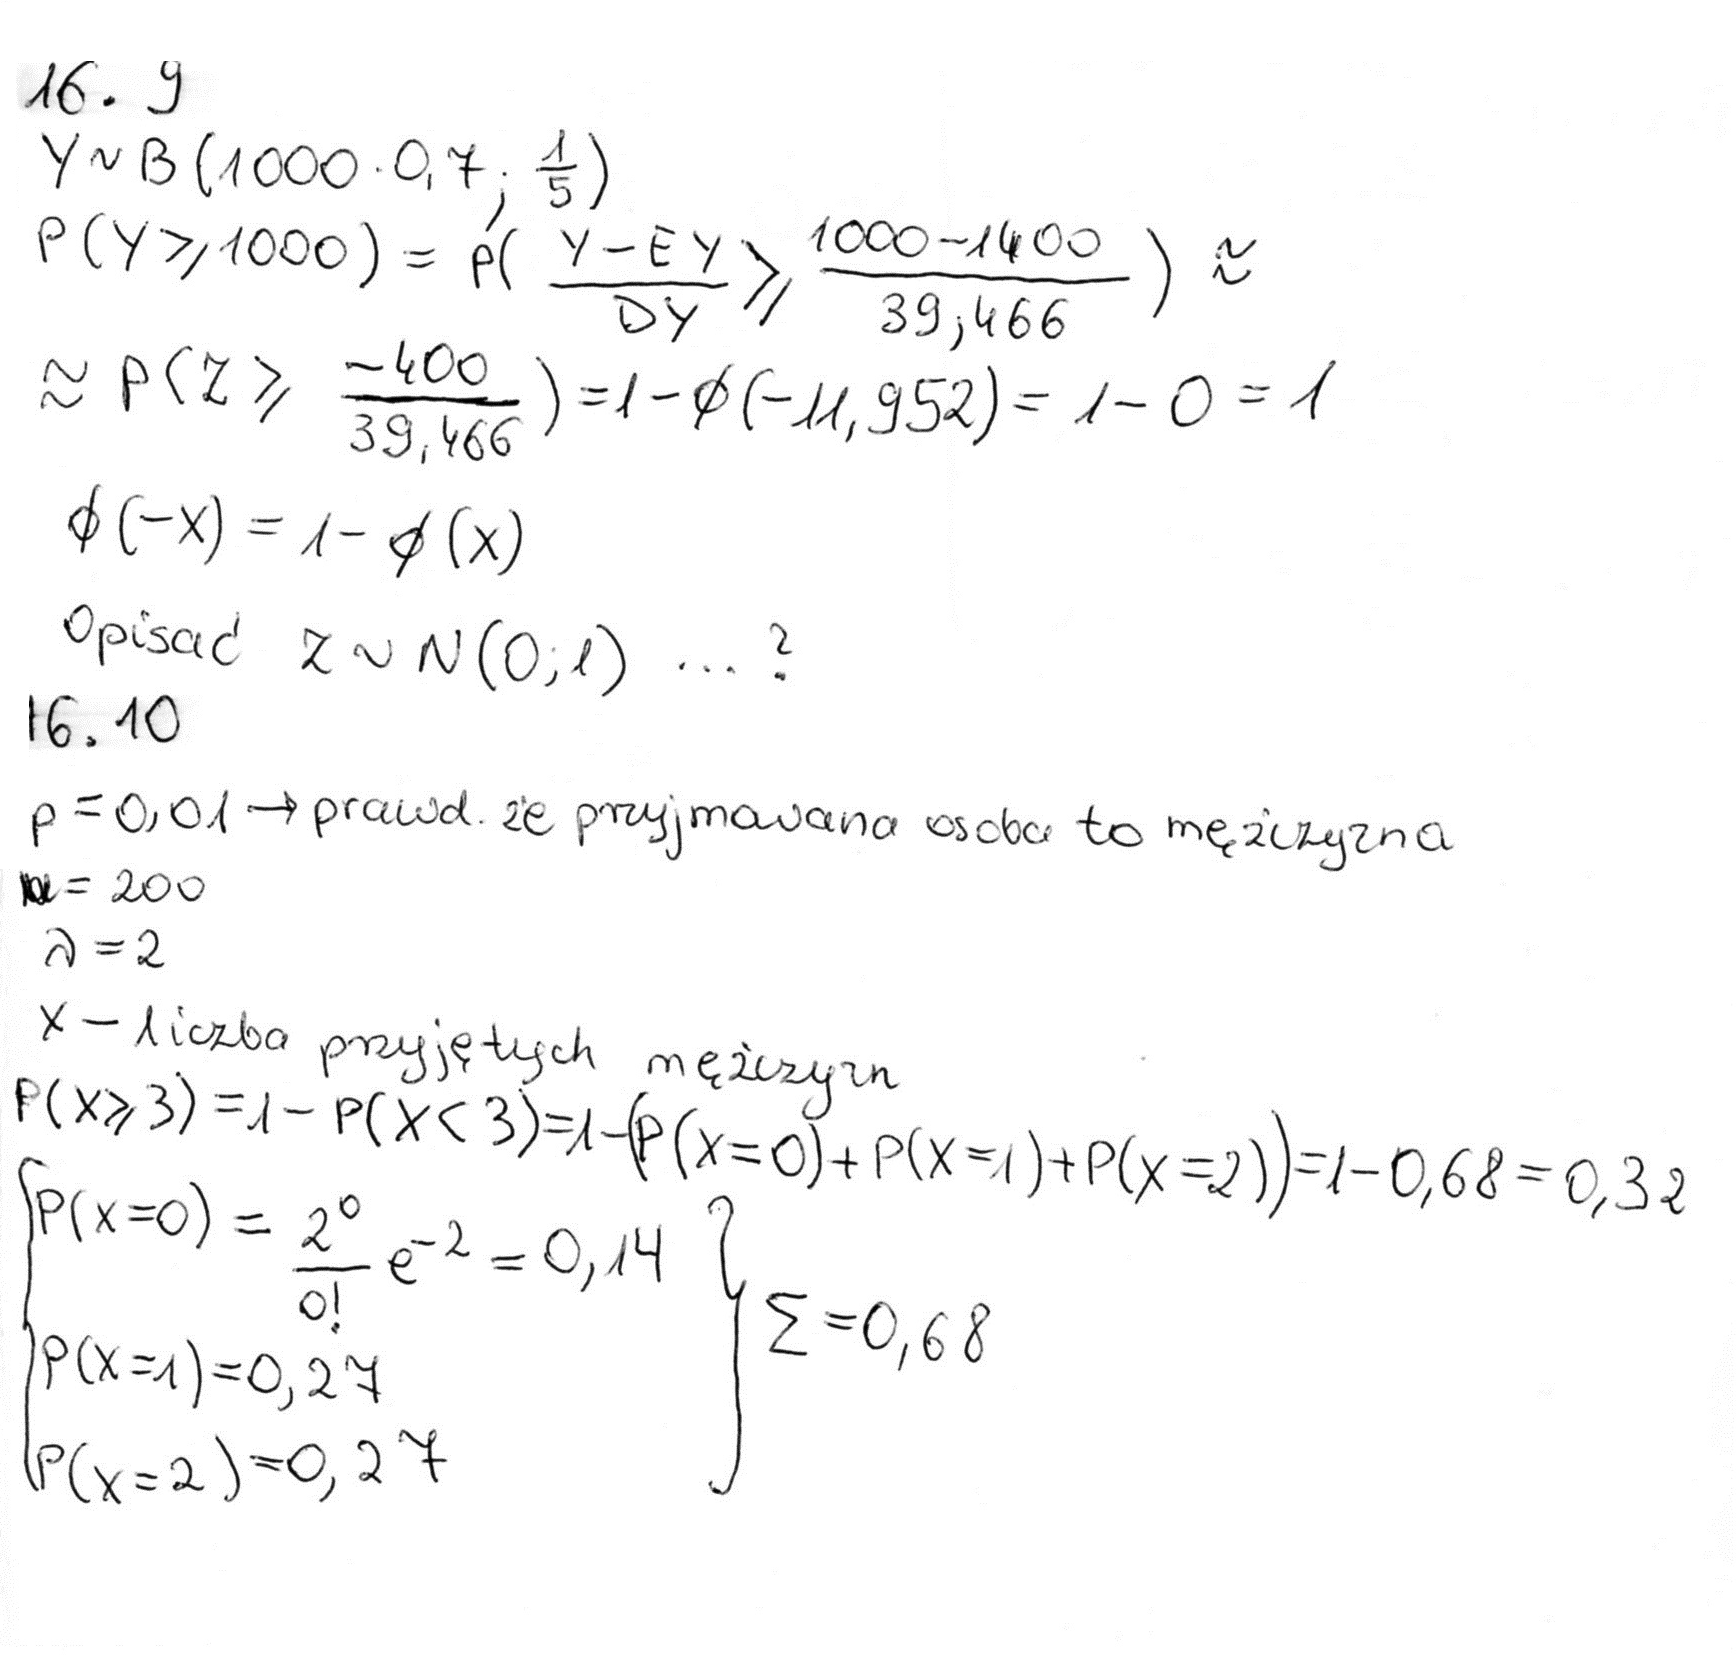 16.9
Y~B(1000·0,7; 1/5)
P(Y⩾1000) = P( (Y-EY)/DY ⩾ (1000-1400)/39,466 ) ≈
≈ P(Z⩾ -400/39,466 ) = 1-ϕ(-11,952) = 1-0 = 1
ϕ(-x) = 1-ϕ(x)
Opisać Z~N(0;1) ...?
16.10
p=0,01 → prawd. że przyjmowana osoba to mężczyzna
n=200
λ=2
X - liczba przyjętych mężczyzn
P(X⩾3) = 1-P(X<3) = 1-(P(X=0)+P(X=1)+P(X=2)) = 1-0,68 = 0,32
P(X=0) = 2⁰/0! e⁻² = 0,14
Σ=0,68
P(X=1)=0,27
P(X=2)=0,27